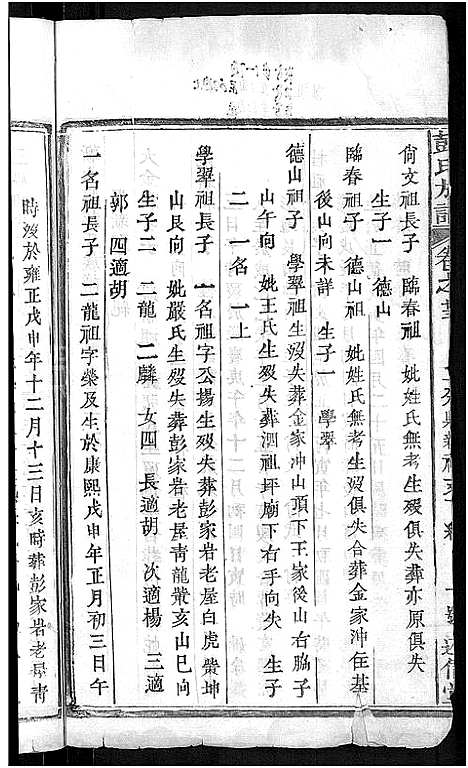 彭氏族譜
尙文祖長子　臨春祖　妣姓氏無考生歿俱失葬亦原俱失
生子一　德山
臨春祖子　德山祖　妣姓氏無考生歿俱失合葬金家冲在基
後山向未詳　生子一　學翠
德山祖子　學翠祖生歿失葬金家冲山頂下王家後山右脇子
山午向　妣王氏生歿失葬泗祖坪廟下右手向失　生子
二　一名　一上
學翠祖長子　一名祖字公揚生歿失葬彭家岩老屋白虎嘴坤
山艮向　妣嚴氏生歿失葬彭家岩老屋靑龍嘴亥山巳向
生子二　二龍　二麟　女四　長適胡　次適楊　三適
郭　四適胡
一名祖長子　二龍祖字榮及生於康熙戊申年正月初三日午
時歿於雍正戊申年十二月十三日亥時葬彭家岩老屋靑